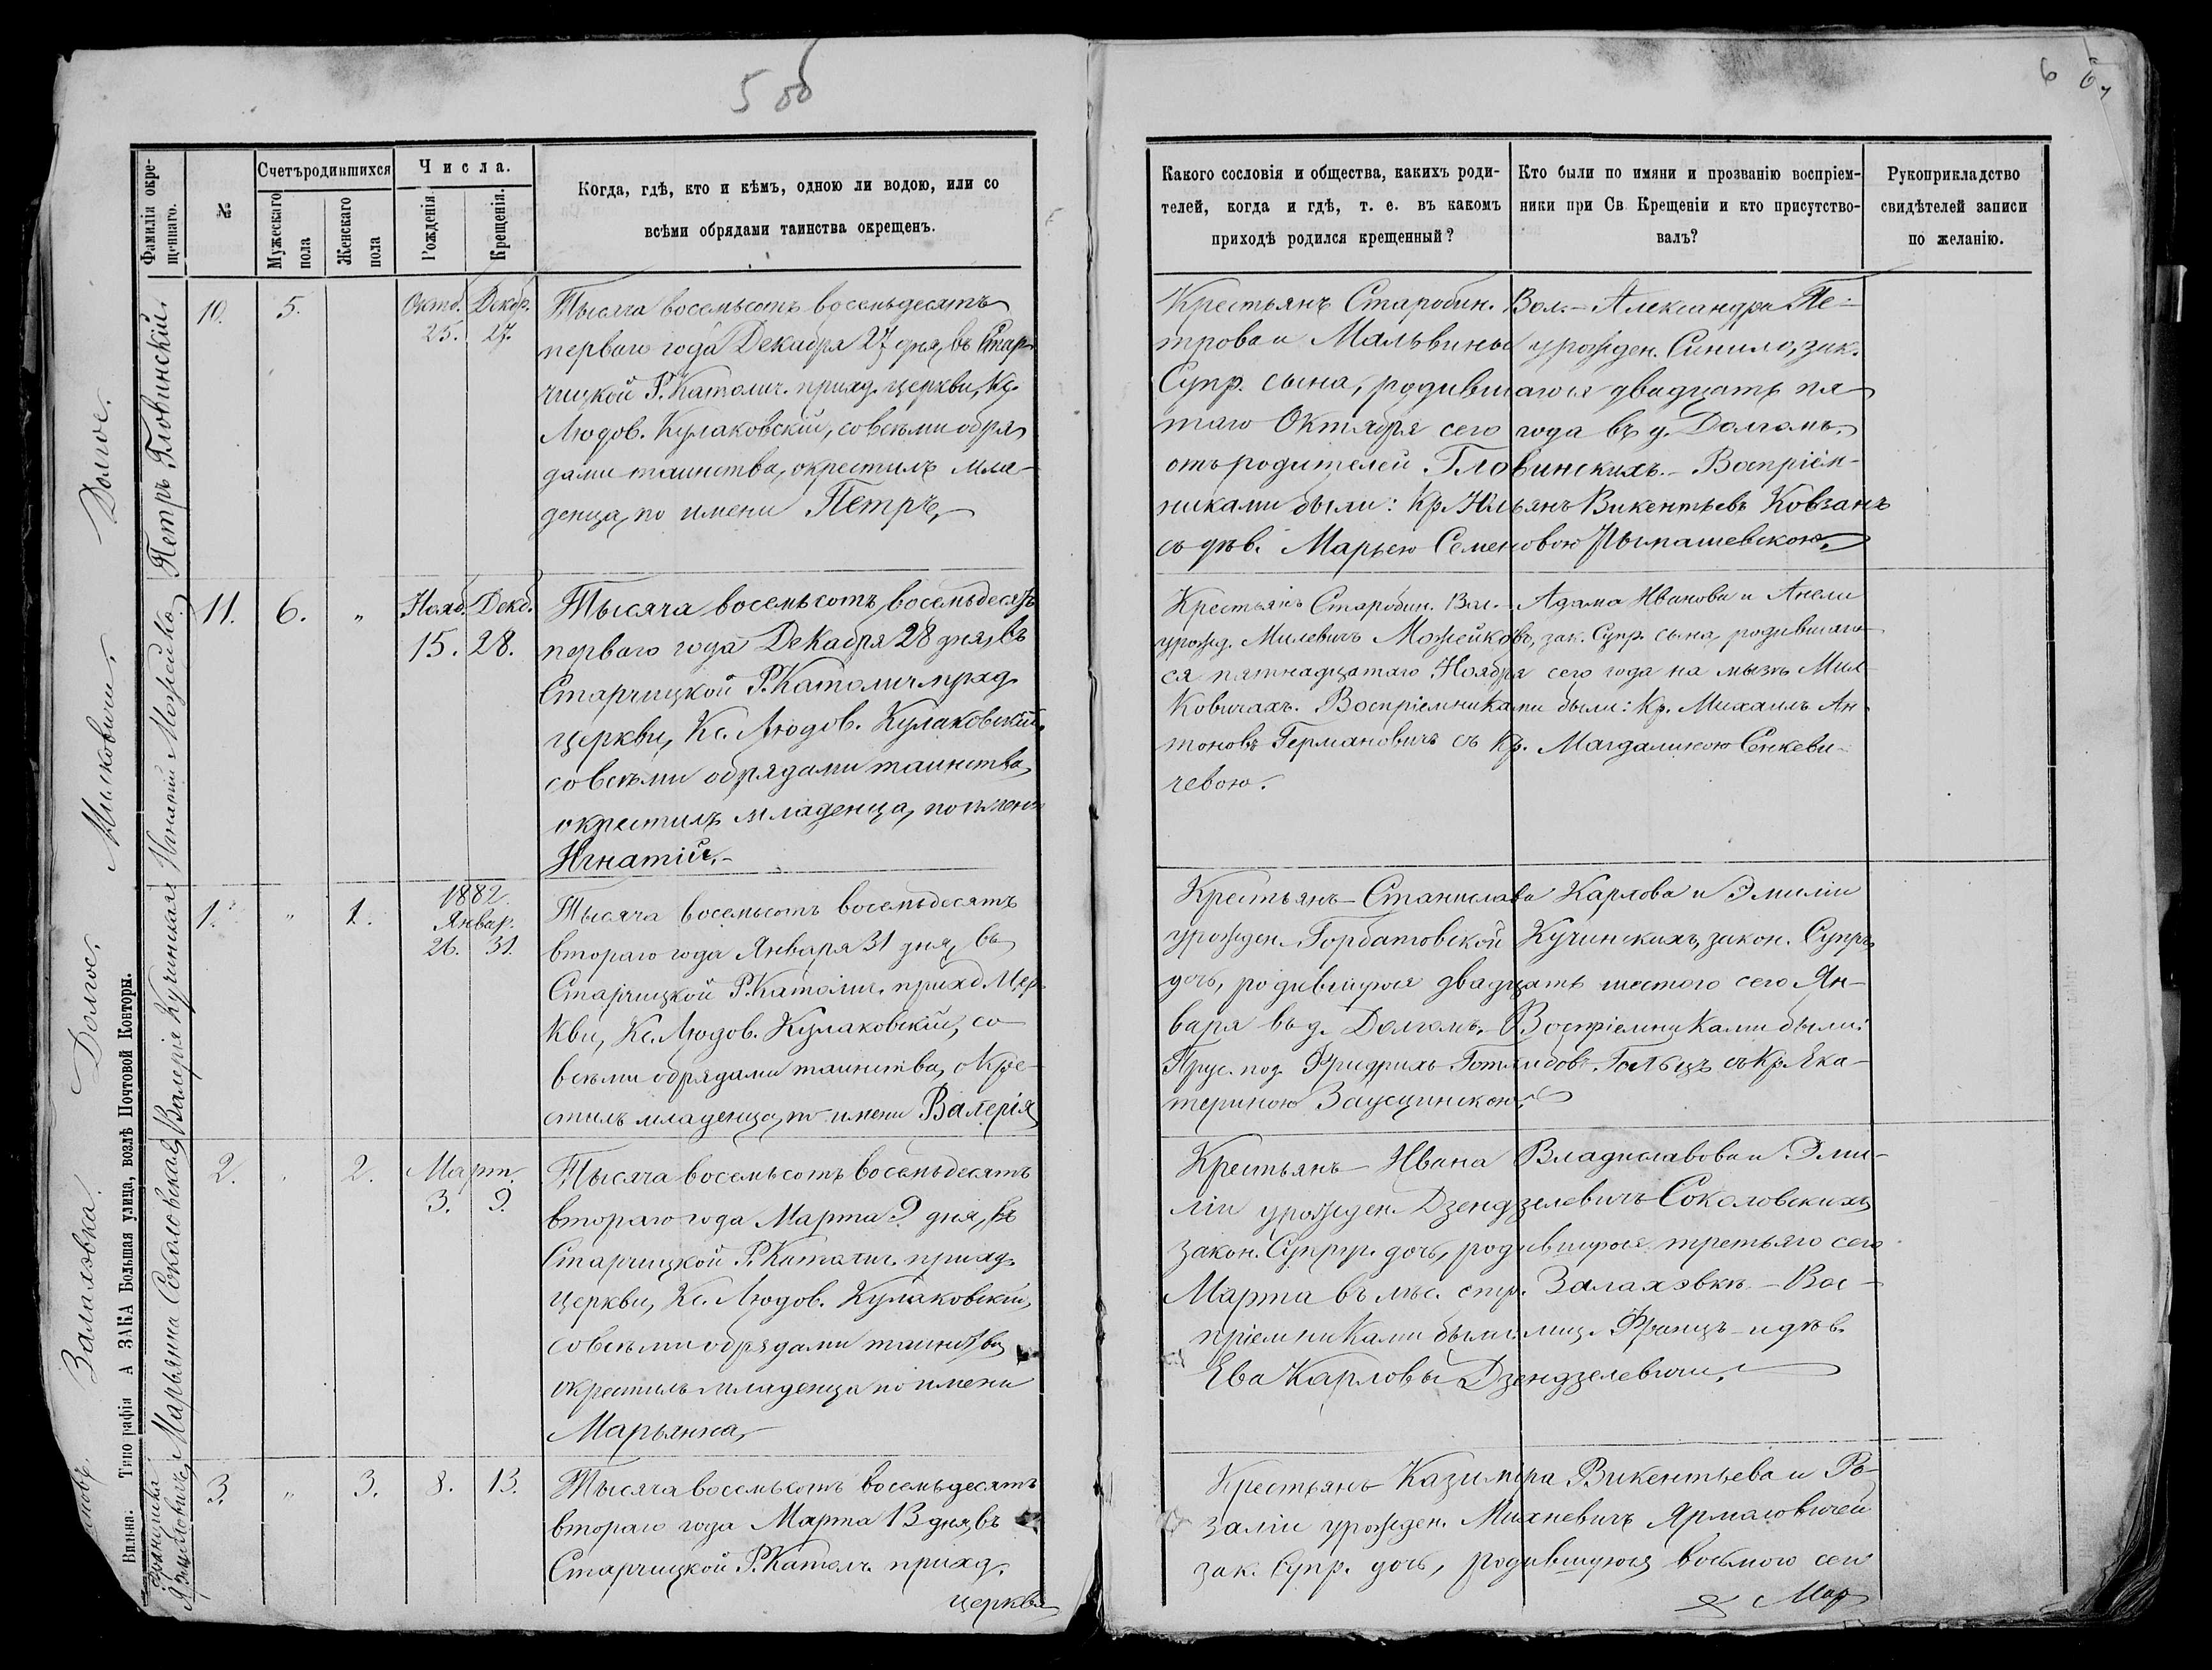 5 об
6
6
Фамилія окре-
щеннаго.
№
Счетъ родившихся
Мужескаго
пола
Женскаго
пола
Числа.
Рожденія.
Крещенія.
Когда, гдѣ, кто и кѣмъ, одною ли водою, или со
всѣми обрядами таинства окрещенъ.
Какого сословія и общества, какихъ роди-
телей, когда и гдѣ, т. е. въ какомъ
приходѣ родился крещенный?
Кто были по имяни и прозванію воспріем-
ники при Св. Крещеніи и кто присутство-
валъ?
Рукоприкладство
свидѣтелей записи
по желанію.
Долгое.
Петръ Гловинскій.
10.
5.
Октб. Декбр.
25. 27.
Тысяча восемьсотъ восемьдесятъ
перваго года Декабря 27 дня, въ Стар-
чицкой Р. Католич. приход. церкви, Кс.
Людов. Кулаковскій, со всѣми обря-
дами таинства, окрестилъ мла-
денца, по имени Петръ,
Крестьянъ Старобин. Вол. - Александра Пе-
трова и Мальвины урожден. Синило, зак.
Супр. сына, родившагося двадцать пя-
таго Октября сего года въ д. Долгомъ,
отъ родителей Гловинскихъ. - Воспріем-
никами были: Кр. Ильянъ Викентьевъ Ковзанъ
съ дѣв. Марьею Семеновою
Мысковичи.
Игнатій Можейко.
11.
6.
"
Нояб. Декб.
15. 28.
Тысяча восемьсотъ восемьдесятъ
перваго года Декабря 28 дня, въ
Старчицкой Р. Католич. прход.
церкви, Кс. Людов. Кулаковскій,
со всѣми обрядами таинства,
окрестилъ младенца, по имени
Игнатій. -
Крестьянъ Старобин. Вол. - Адама Иванова и Анели
урожд. Милевичъ Можейковъ, зак. Супр. сына, родившаго-
ся пятнадцатаго Ноября сего года на мызѣ Мис-
ковичахъ. Воспріемниками были: Кр. Михаилъ Ан-
тоновъ Германовичъ съ Кр. Магдалиною Сенкеви-
чевою.
Долгое.
Валерія Кучинская
1.
"
1.
1882.
Январ.
26. 31.
Тысяча восемьсотъ восемьдесятъ
втораго года Января 31 дня, въ
Старчицкой Р. Католич. приход. Цер-
кви, Кс. Людов. Кулаковскій, со
всѣми обрядами таинства, окре-
стилъ младенца, по имени Валерія
Крестьянъ - Станислава Карлова и Эмиліи
урожден. Горбатовской Кучинскихъ, закон. Супр.
дочь, родившуюся двадцать шестого сего Ян-
варя въ д. Долгомъ. - Воспріемниками были:
Прус. под. Фридрихъ Готлибовъ съ Кр. Ека-
териною
Залаховка.
Марьянна Соколовская
2.
"
2.
Март.
3. 9.
Тысяча восемьсотъ восемьдесятъ
втораго года Марта 9 дня, въ
Старчицкой Р. Католич. приход.
церкви, Кс. Людов. Кулаковскій,
со всѣми обрядами таинства
окрестилъ младенца по имени
Марьянна, -
Крестьянъ - Ивана Владиславова и Эми-
ліи урожден. Дзендзелевичъ Соколовскихъ
закон. Супруг. дочь, родившуюся третьяго сего
Марта въ лѣс. стр. Залаховкѣ. - Вос-
пріемниками были: мищ. Францъ и дѣв.
Ева Карловы Дзендзелевичи.
Франциска
Ярмоловичъ
3.
"
3.
8. 13.
Тысяча восемьсотъ восемьдесятъ
втораго года Марта 13 дня, въ
Старчицкой Р. Католч. приход.
церкви
Крестьянъ - Казиміра Викентьева и Ро-
заліи урожден. Михневичъ Ярмоловичей
зак. Супр. дочь, родившуюся восьмого сего
Мар
Вильна. Типографія А ЗАКА Большая улица, возлѣ Почтовой Конторы.